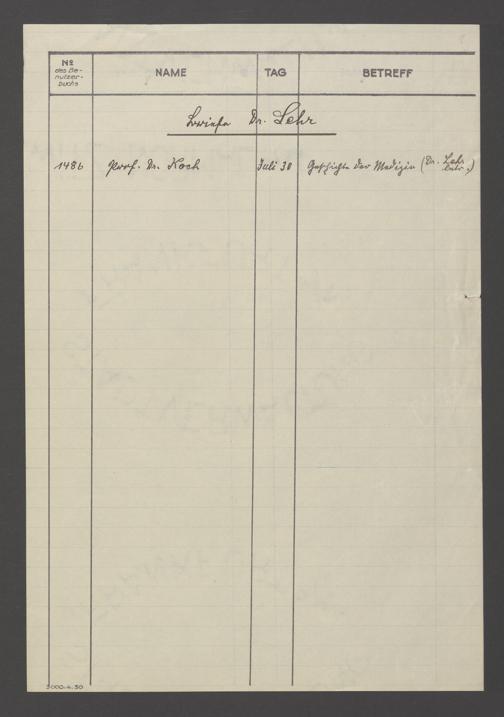 No
des Be-
nutzer-
buchs
NAME
TAG
BETREFF
Briefe Dr. Lehr
1486 Prof. Dr. Koch Juli 30 Geschichte der Medizin (Dr. Lehr
betr.)
3000.4.30